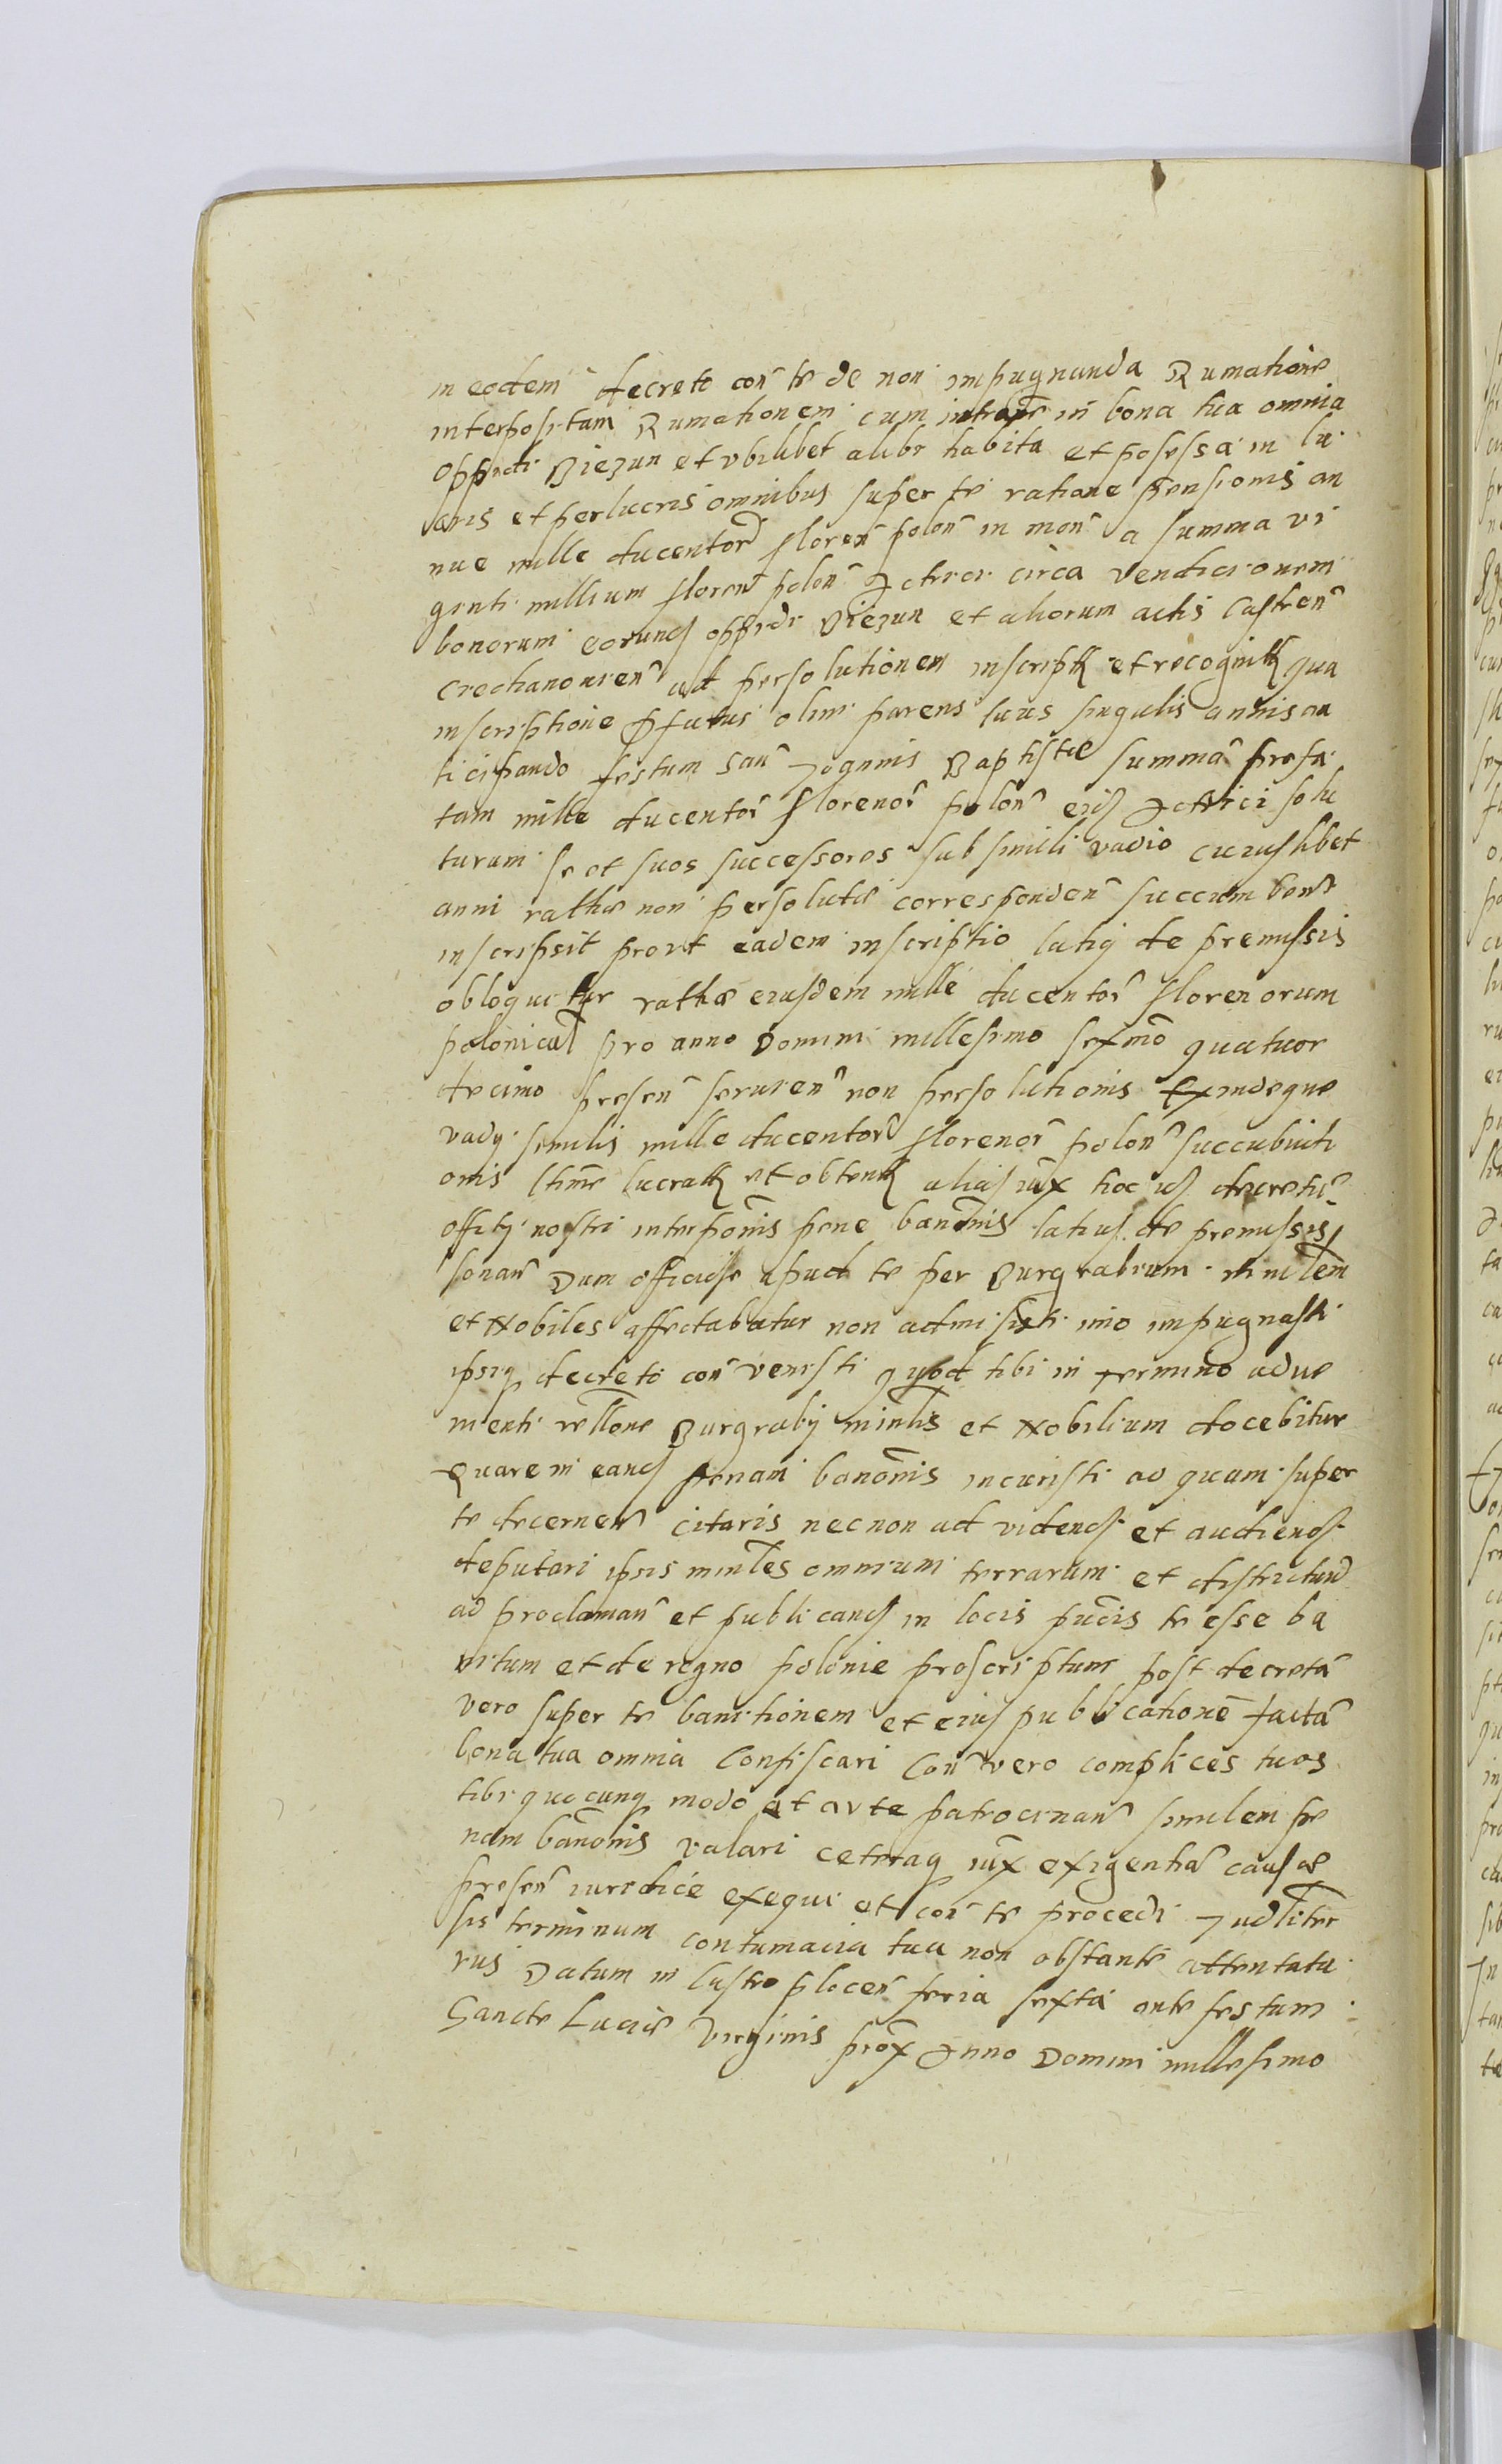 in eodem decreto con te de non impugnanda Rumatione
interpositam Rumationem cum intram in bona tua omnia
oppidi Biezun et vbilibet alibi habita et posessa in lu
cris et perlucris omnibus super te ratione pensionis an
nue mille ducentor floren polon in mon a summa vi
ginti millium floren polon Actrici circa vendicionem
bonorum eorund oppidi Biezun et aliorum actis Castren
Ciechanouien ad persolutionem inscript et recognit qua
inscriptione pfatus olim parens tuus singulis annis an
ticipando festum San Joannis Baptistae summa prefa
tam mille ducentor florenor polon eid Actrici solu
turum se et suos successores sub simili vadio cuiuslibet
anni rathae non persolutae corresponden succumben
inscripsit prout eadem inscriptio latiq de premissis
obloquitur rathae eiusdem mille ducentor florenorum
polonical pro anno Domini millesimo sexmo quatuor
decimo presen seruien non persolutionis Exindeque
vadij similis mille ducentor florenor polon succubuiti
onis ltime lucrat et obtent alias iux hoc id decretu
offitij nostri interponis pene bannonis latius de premissis
sonan Dum officiose apud te per Burgrabium minlem
et Nobiles affectabatur non admisisti imo impugnasti
ipsiq decreto con venisti quod tibi in termino adue
nienti rellone Burgrabij minlis et Nobilium docebitur
Quare in eand penam bannonis incuristi ad quam super
te decernen citaris necnon ad vidend et audiend
deputari ipsis minles omnium terrarum et districtuu
ad proclaman et publicand in locis pucis te esse ba
nitum et de regno polonie proscriptum post decreta
vero super te banitionem et eius publicatione facta
bona tua omnia Confiscari Con vero complices tuos
tibi quocunq modo at arte patrocinan similem pe
nam bannonis valari ceteraq iux exigentia causae
presen iuredice exequi et con te procedi Judliter
sis terminum contumacia tua non obstante attentatu
rus Datum in Castro plocen feria sexta ante festum
Sancte Luciae Virginis prox Anno Domini millesimo